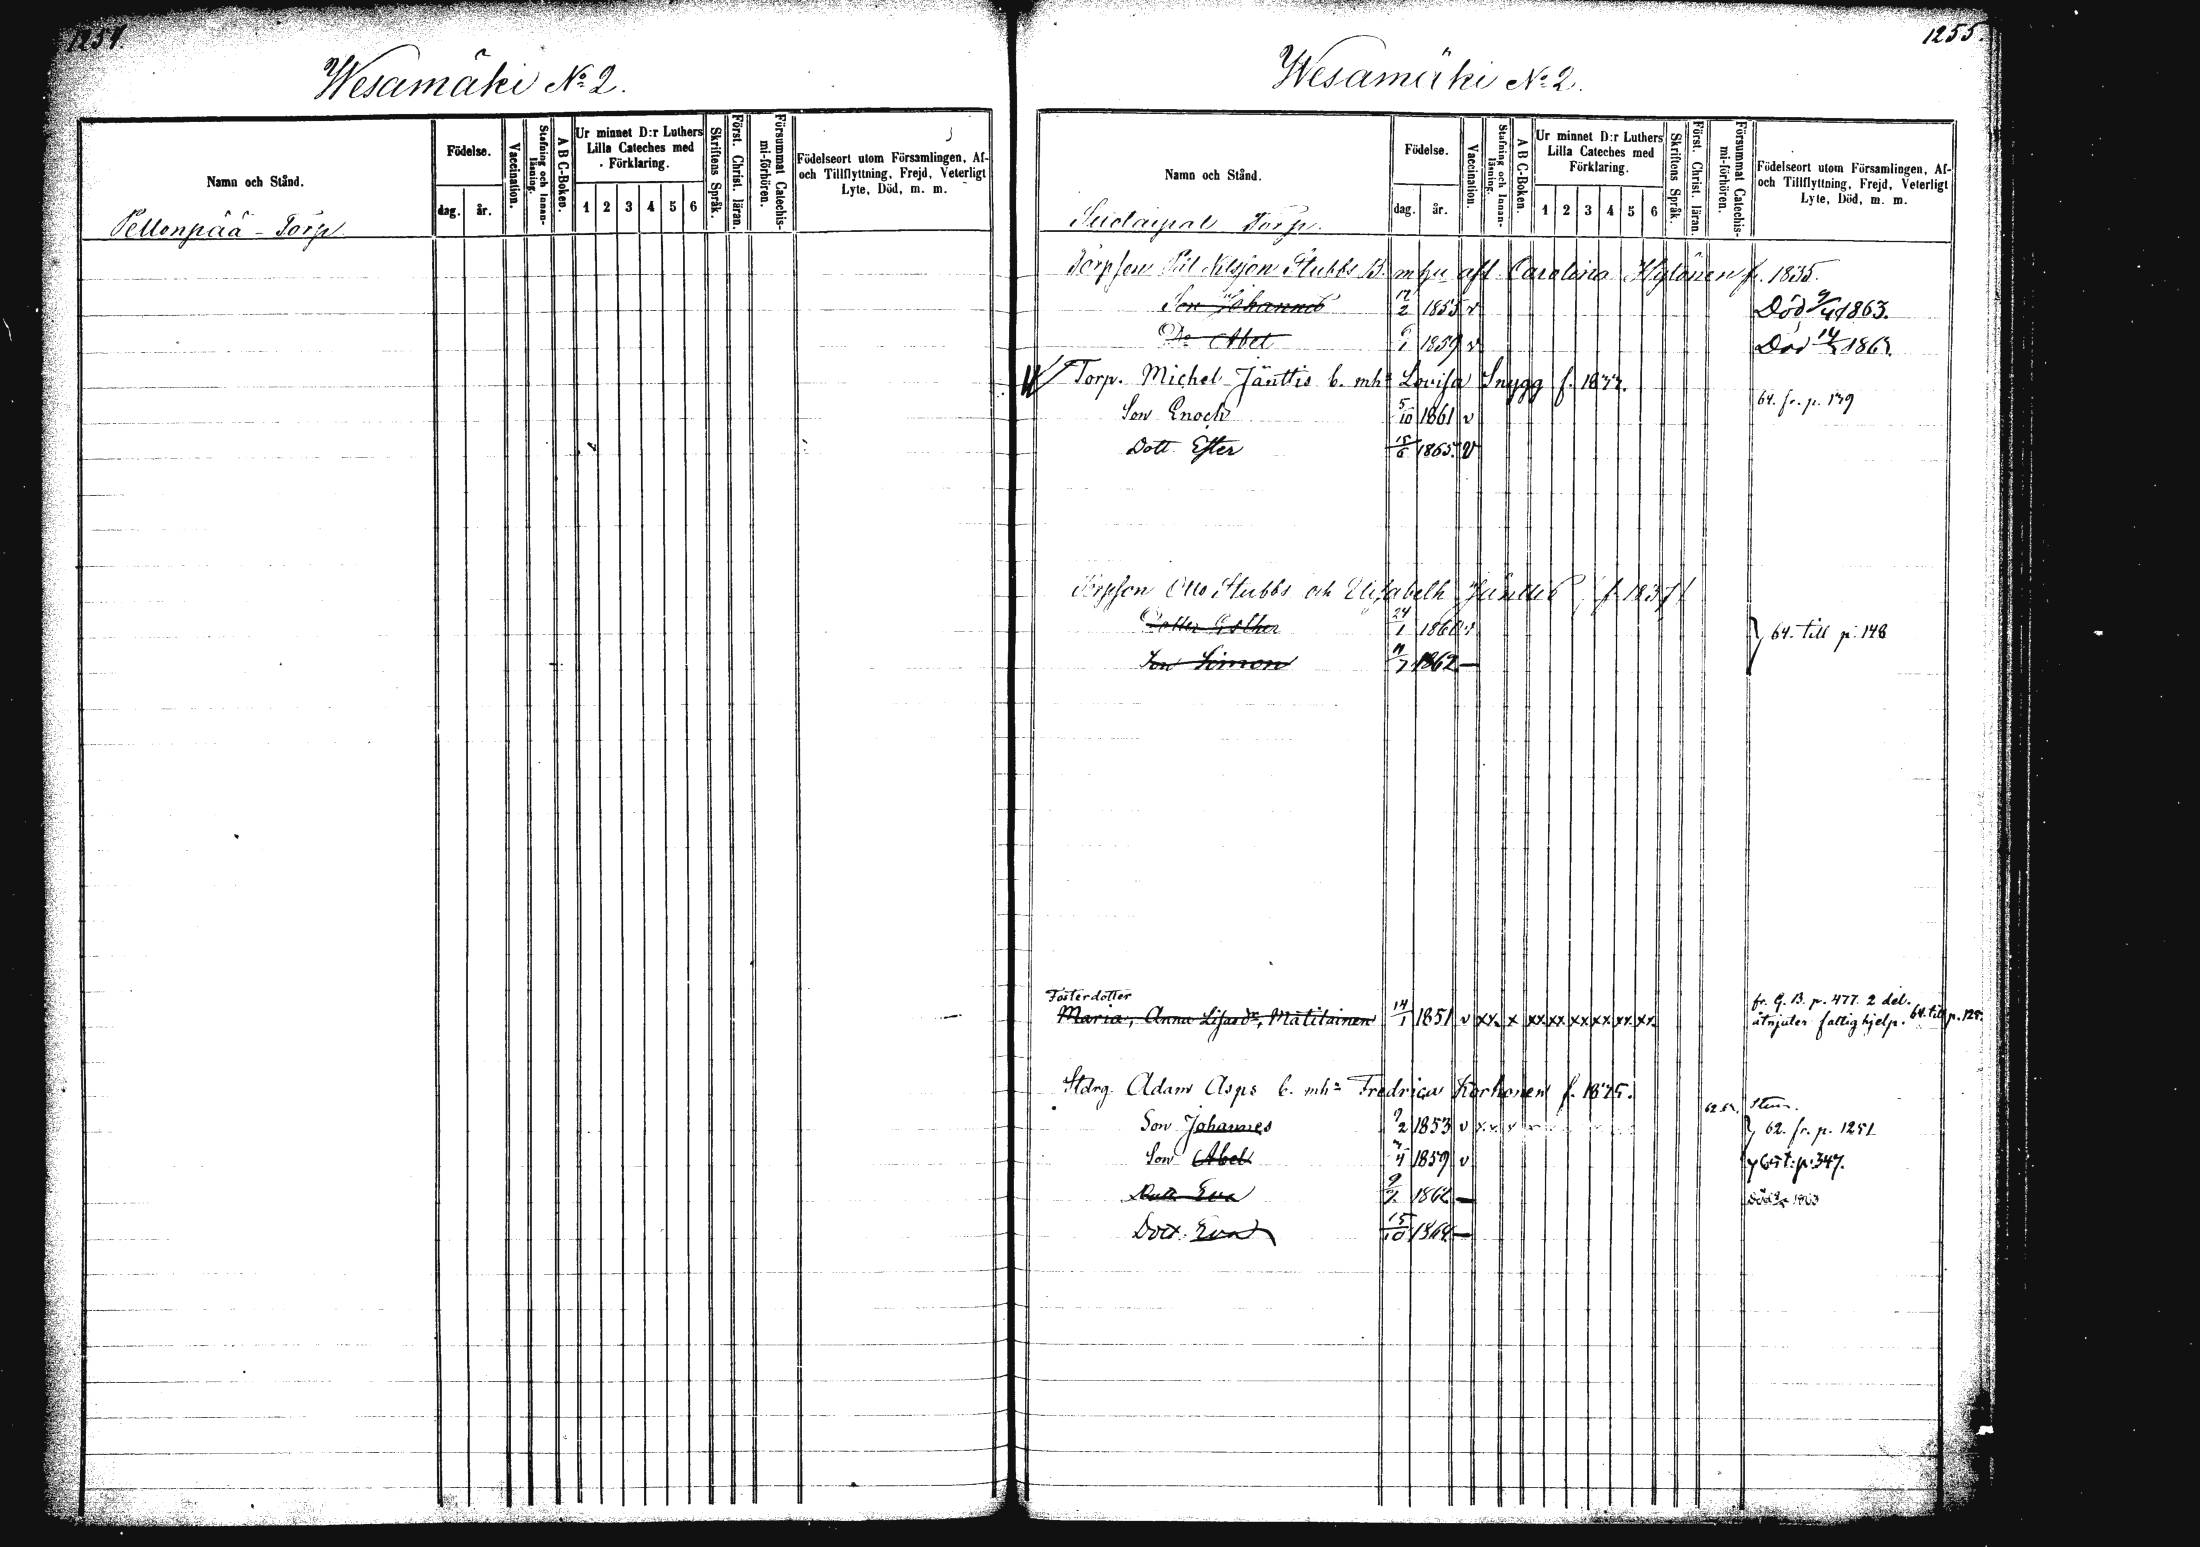 1254.
Wesamäki No 2.
Namn och Stånd.
Födelse.
dag. år.
Vaccination.
Stafning och Innan-läsning.
A B C-Boken.
Ur minnet D:r Luthers
Lilla Cateches med
Förklaring.
1 2 3 4 5 6
Skriftens Språk.
Först. Christ. läran.
Försummat Catechis-mi-förhören.
Födelseort utom Församlingen, Af-
och Tillflyttning, Frejd, Veterligt
Lyte, Död, m. m.
Pellonpää - Torp
1255.
Wesamäki No 2.
Namn och Stånd.
Födelse.
dag. år.
Vaccination.
Stafning och Innan-läsning.
A B C-Boken.
Ur minnet D:r Luthers
Lilla Cateches med
Förklaring.
1 2 3 4 5 6
Skriftens Språk.
Först. Christ. läran.
Försummat Catechis-mi-förhören.
Födelseort utom Församlingen, Af-
och Tillflyttning, Frejd, Veterligt
Lyte, Död, m. m.
Torp.
Stubbs Carolina Hytönen f. 1835.
Son Johannes 1855 v Död 1863.
Do Abel 1859 v Död
Torp. Michel Jänttis b. mh Lovisa Snygg
Son Enoch 5/10 1861 v 64. fr. p. 179
Dott. Ester 15/6 1865. v
Torpson Otto Stubbs och Elisabeth Jänttis f. 1837
Dotter Esther 24/1 1860 v 64. till p. 148
Son Simon 11/7 1862 —
Fosterdotter
Maria, Anna Lisasdr, Matilainen 14/1 1851 v xx. x xx. xx. xx xx xx. xx. fr. G. B. p. 477. 2 del.
åtnjuter fattighjelp. 64. till p. 128.
Stdrg Adam Asps b. mh Fredrica Korhonen
Son Johannes 1853 v 62. fr. p. 1251
Son Abel 1859 v p. 347.
Dott. Eva 1862 —
Dott. Eva 15/10 1864. —